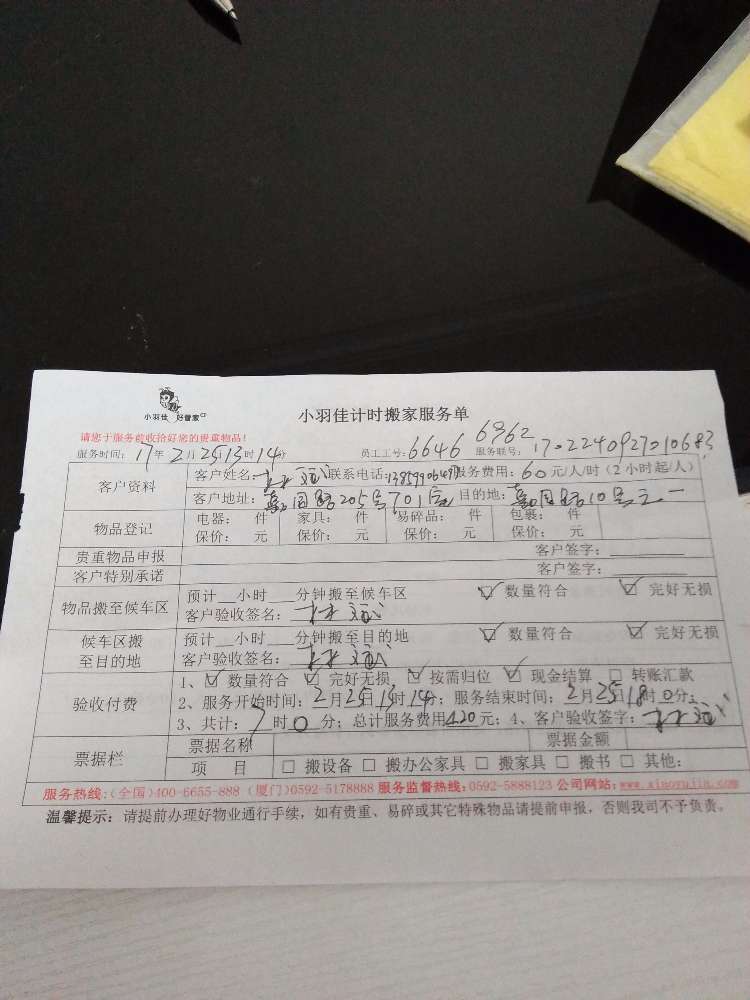 小羽佳 好管家
小羽佳计时搬家服务单
请您于服务前收拾好您的贵重物品!
服务时间: 17年 2月25日13时14分 员工工号: 6646 6962 服务联号: 1702240927010683
客户资料 客户姓名: 林 联系电话: 服务费用: 60元/人/时(2小时起/人)
客户地址: 嘉园路205号701室 目的地: 嘉园路10号之一
物品登记 电器: 件 家具: 件 易碎品: 件 包裹: 件
保价: 元 保价: 元 保价: 元 保价: 元
贵重物品申报 客户签字:
客户特别承诺 客户签字:
物品搬至候车区 预计 小时 分钟搬至候车区 ☑ 数量符合 ☑ 完好无损
客户验收签名: 林
候车区搬至目的地 预计 小时 分钟搬至目的地 ☑ 数量符合 ☑ 完好无损
客户验收签名: 林
验收付费 1、☑ 数量符合 ☑ 完好无损 ☑ 按需归位 ☑ 现金结算 □ 转账汇款
2、服务开始时间: 2月25日 时14分; 服务结束时间: 2月25日18时0分;
3、共计: 7时0分; 总计服务费用420元; 4、客户验收签字: 林
票据栏 票据名称 票据金额
项 目 □ 搬设备 □ 搬办公家具 □ 搬家具 □ 搬书 □ 其他:
服务热线:(全国)400-6655-888 (厦门)0592-5178888 服务监督热线:0592-5888123 公司网站:www.xiaoyujia.com
温馨提示: 请提前办理好物业通行手续, 如有贵重、易碎或其它特殊物品请提前申报, 否则我司不予负责。